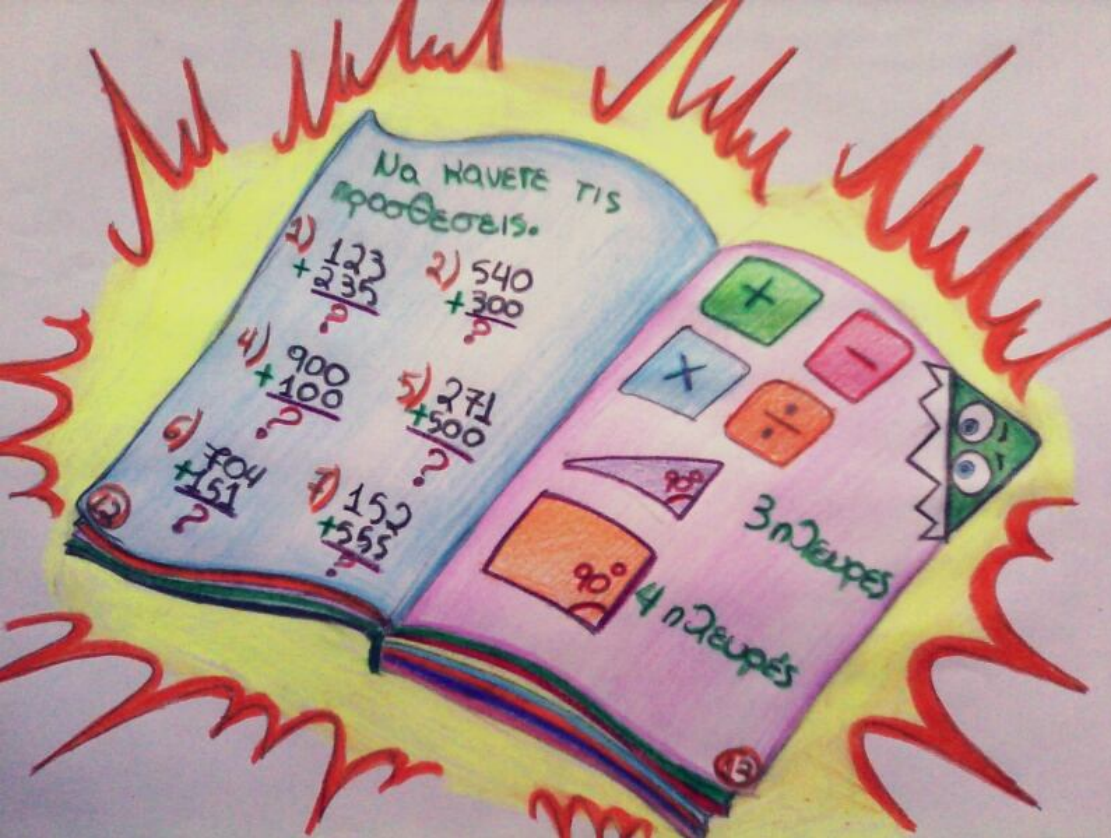 Να κανετε τις
προσθεσεις.
1) 123
+ 235
?
2) 540
+ 300
?
4) 900
+ 100
?
5) 271
+ 500
?
6) 704
+ 151
?
7) 152
+ 555
?
12
+
-
x
÷
90°
3 πλευρές
90°
4 πλευρές
13